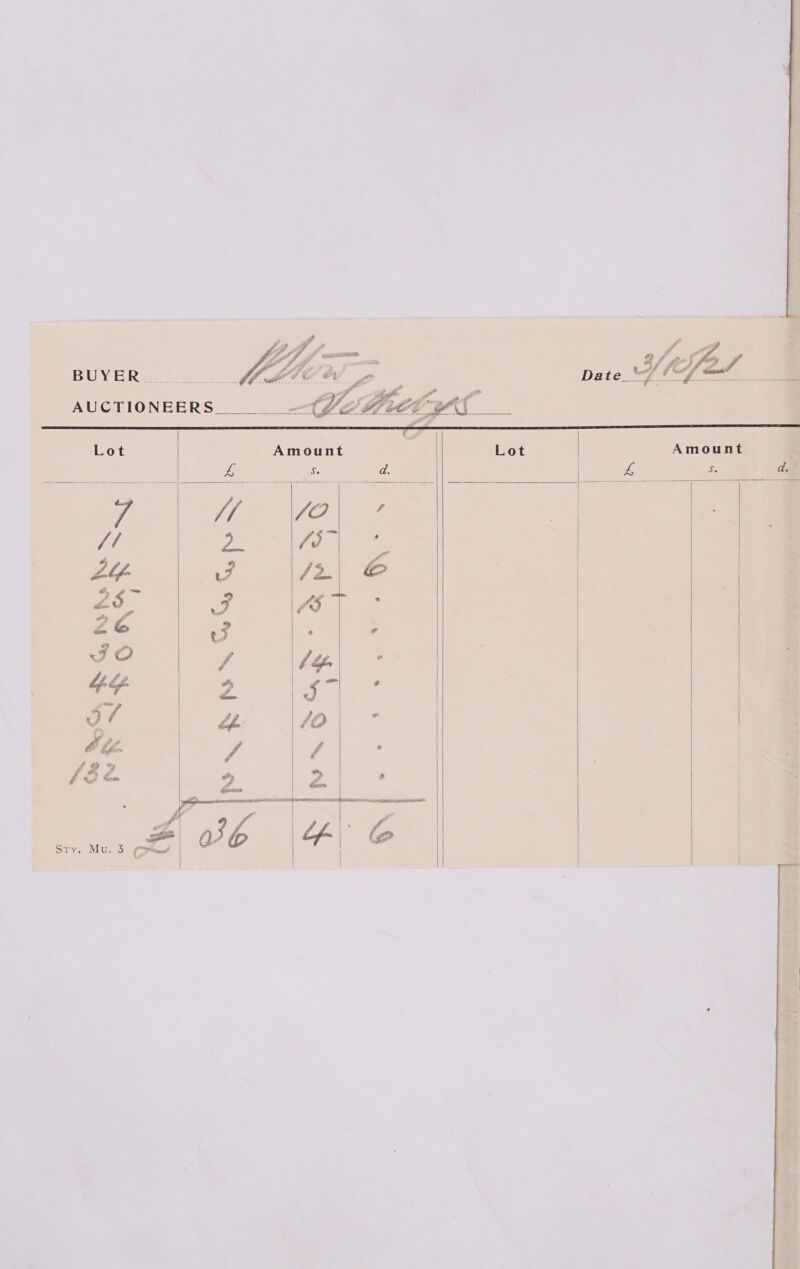 BUYER
AUCTIONEERS Sothebys
Date
Lot Amount Lot Amount
£ s. d. £ s. d.
7 11 10 "
11 2 15 "
24 3 12 6
25 3 15 "
26 3 " "
30 1 14 "
44 2 5 "
4 10 "
1 1 "
132 2 2 "
£ 36 4 6
Sty. Mu. 3